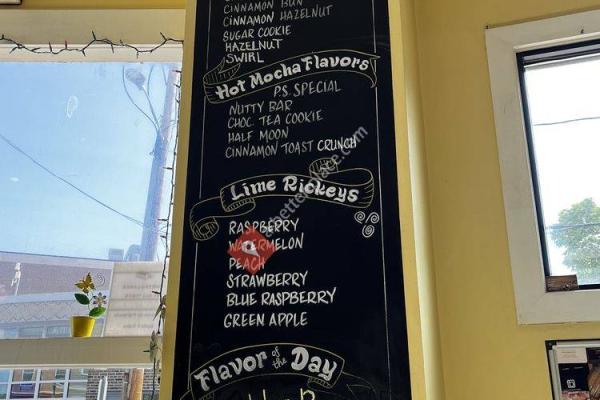 CINNAMON BUN
CINNAMON HAZELNUT
SUGAR COOKIE
HAZELNUT
SWIRL
Hot Mocha Flavors
P.S. SPECIAL
NUTTY BAR
CHOC. TEA COOKIE
HALF MOON
CINNAMON TOAST CRUNCH
Lime Rickeys
RASPBERRY
WATERMELON
PEACH
STRAWBERRY
BLUE RASPBERRY
GREEN APPLE
Flavor of the Day